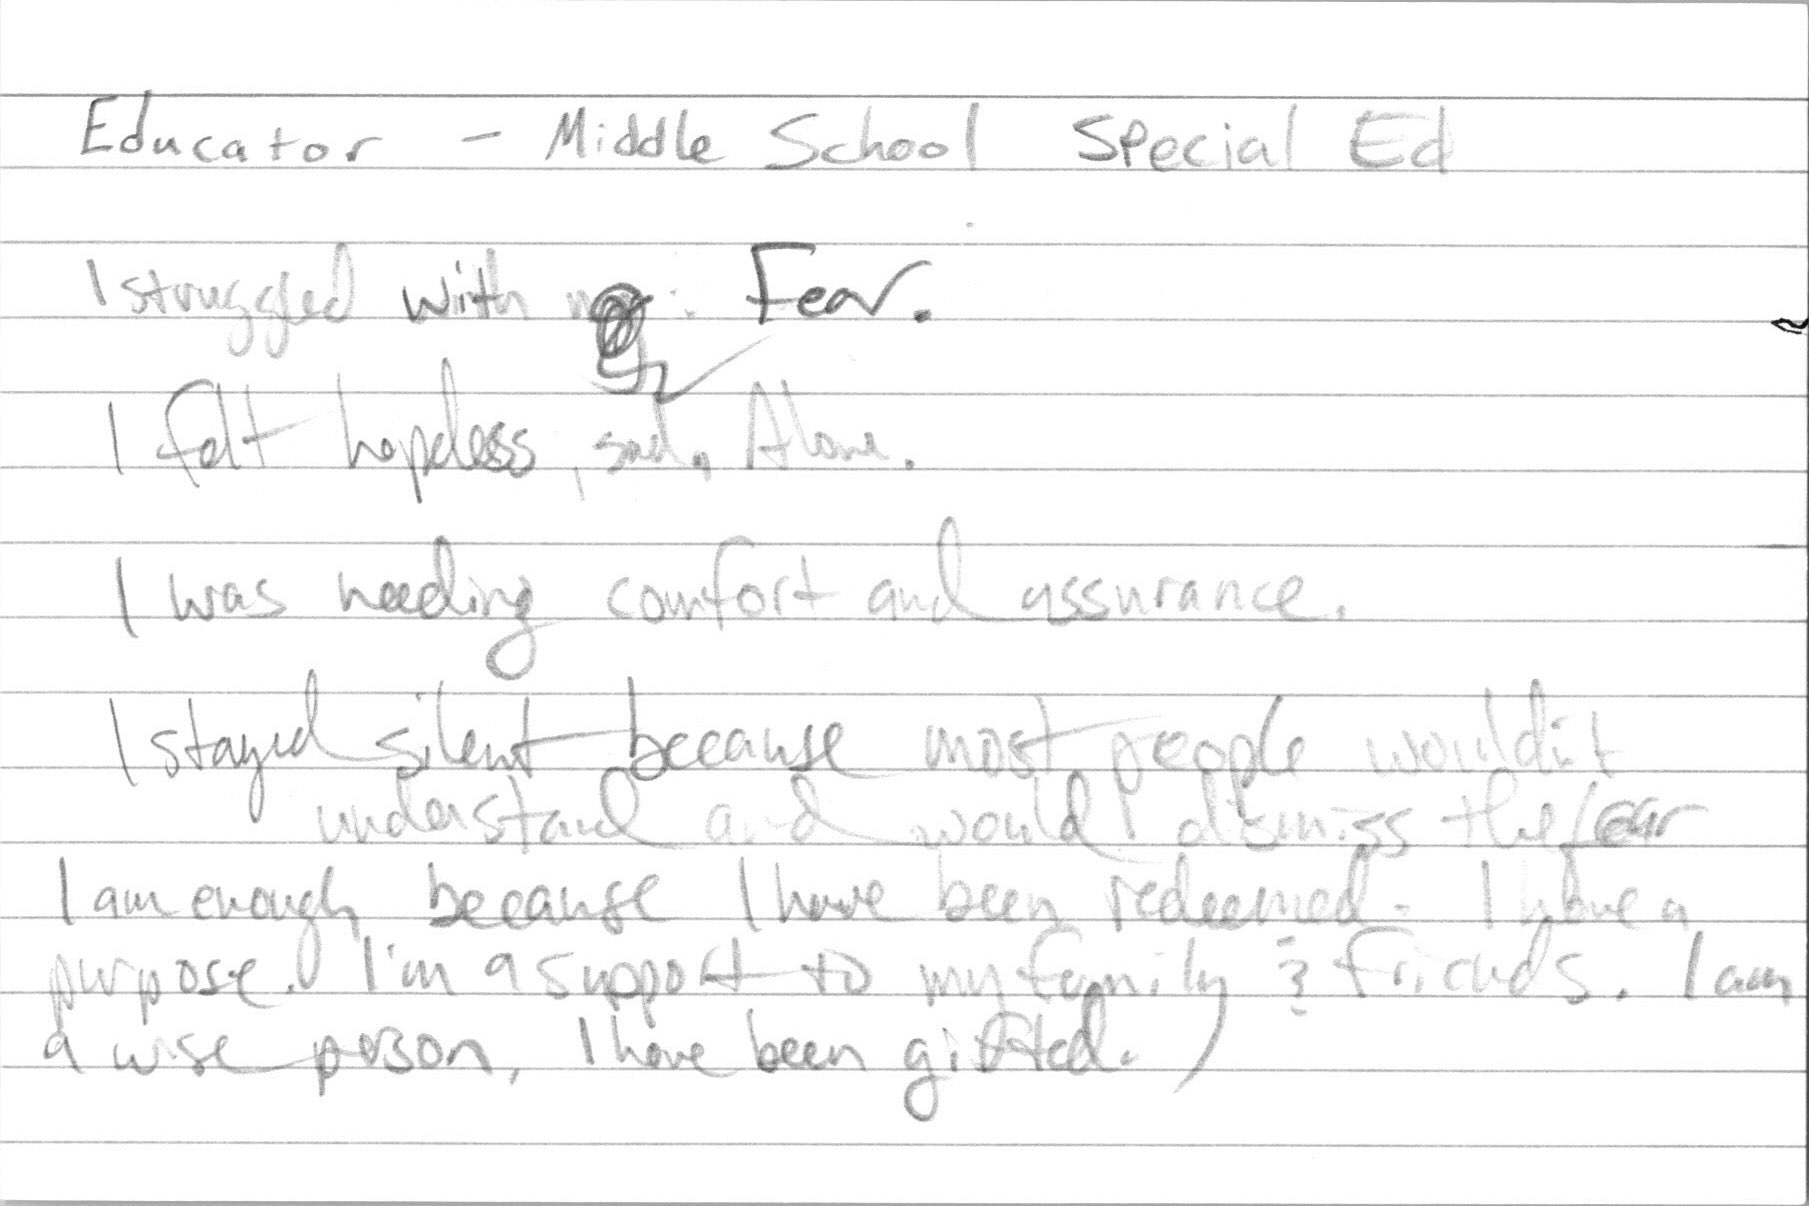 Educator - Middle School Special Ed
I struggled with Fear.
I felt hopeless, sad, Alone.
I was needing comfort and assurance.
I stayed silent because most people wouldn't
understand and would dismiss the fear
I am enough because I have been redeemed. I have a
purpose. I'm a support to my family & friends. I am
a wise person, I have been gifted.